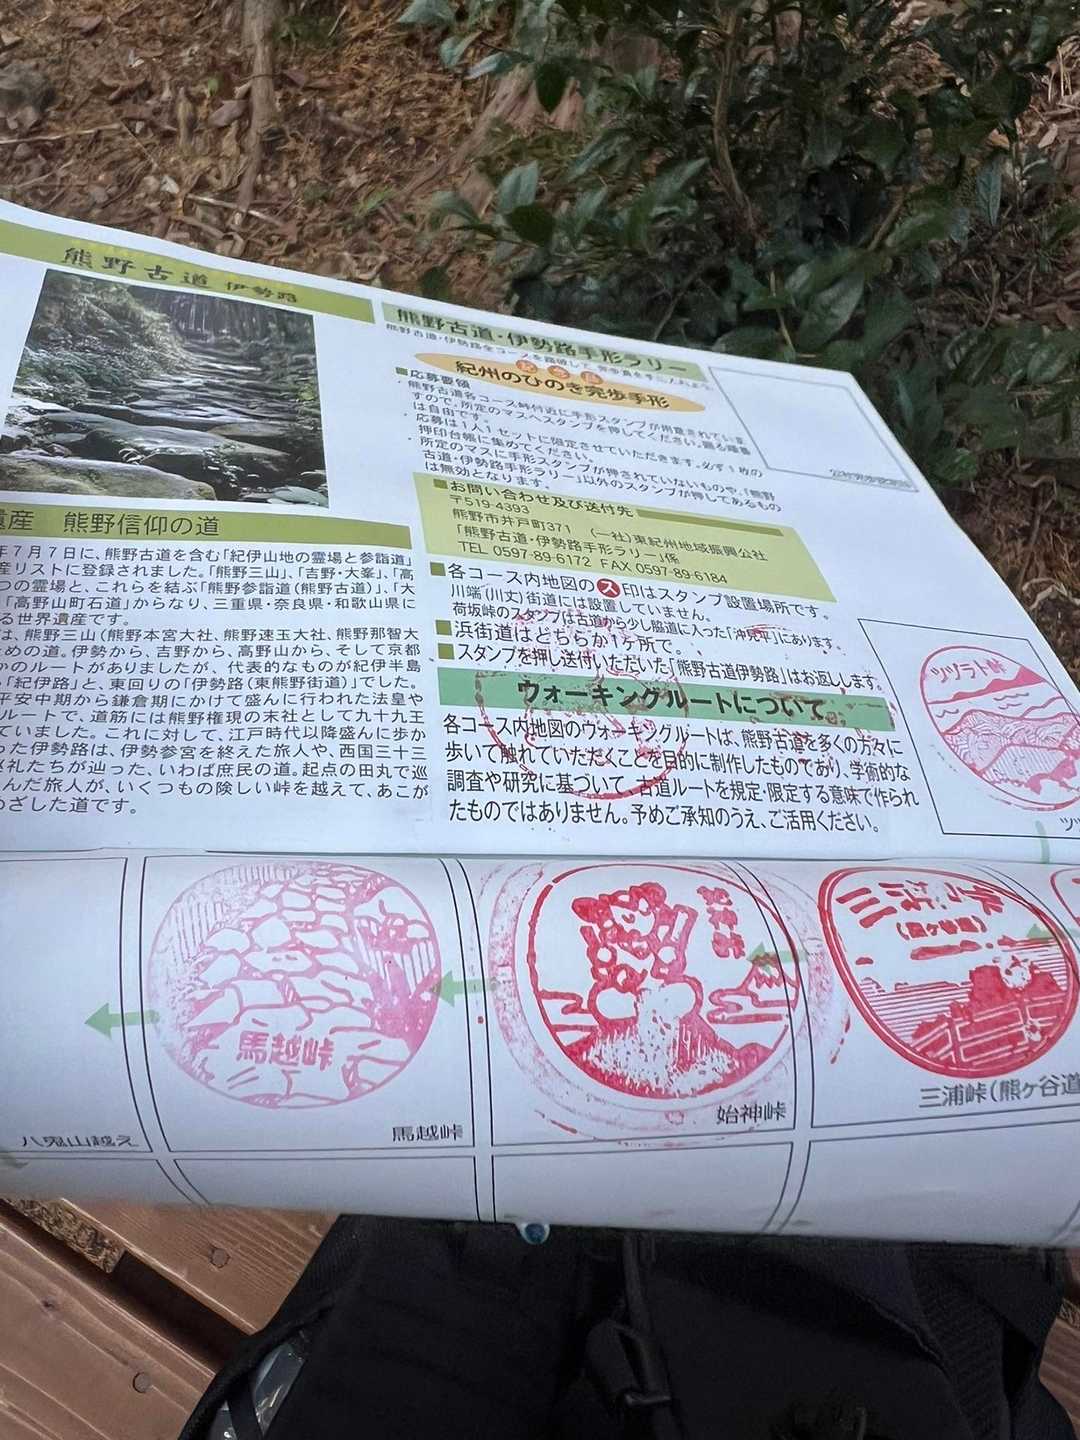 熊野古道 伊勢路
遺産 熊野信仰の道
年7月7日に、熊野古道を含む「紀伊山地の霊場と参詣道」
産リストに登録されました。「熊野三山」、「吉野・大峯」、「高
つの霊場と、これらを結ぶ「熊野参詣道(熊野古道)」、「大
「高野山町石道」からなり、三重県・奈良県・和歌山県に
る世界遺産です。
は、熊野三山(熊野本宮大社、熊野速玉大社、熊野那智大
めの道。伊勢から、吉野から、高野山から、そして京都
かのルートがありましたが、代表的なものが紀伊半島
「紀伊路」と、東回りの「伊勢路(東熊野街道)」でした。
平安中期から鎌倉期にかけて盛んに行われた法皇や
ルートで、道筋には熊野権現の末社として九十九王
ていました。これに対して、江戸時代以降盛んに歩か
った伊勢路は、伊勢参宮を終えた旅人や、西国三十三
巡礼たちが辿った、いわば庶民の道。起点の田丸で巡
んだ旅人が、いくつもの険しい峠を越えて、あこが
めざした道です。
熊野古道・伊勢路手形ラリー
熊野古道・伊勢路全コースを踏破して
紀州のひのき完歩手形
■応募要領
・熊野古道各コース峠付近に手形スタンプが用意されていま
すので、所定のマスへスタンプを押してください。踏る順番
は自由です。
・応募は1人1セットに限定させていただきます。必ず1枚の
押印台帳に集めてください。
・所定のマスに手形スタンプが押されていないものや、「熊野
古道・伊勢路手形ラリー」以外のスタンプが押してあるもの
は無効となります。
■お問い合わせ及び送付先
〒519-4393
熊野市井戸町371 (一社)東紀州地域振興公社
「熊野古道・伊勢路手形ラリー」係
TEL 0597-89-6172 FAX 0597-89-6184
■各コース内地図のス印はスタンプ設置場所です。
川端(川丈)街道には設置していません。
荷坂峠のスタンプは古道から少し脇道に入った「沖見平」にあります。
■浜街道はどちらか1ヶ所で。
■スタンプを押し送付いただいた「熊野古道伊勢路」はお返しします。
ウォーキングルートについて
各コース内地図のウォーキングルートは、熊野古道を多くの方々に
歩いて触れていただくことを目的に制作したものであり、学術的な
調査や研究に基づいて、古道ルートを規定・限定する意味で作られ
たものではありません。予めご承知のうえ、ご活用ください。
ツヅラト峠
ツヅ
馬越峠
八鬼山越え
馬越峠
始神峠
三浦峠(熊ヶ谷道